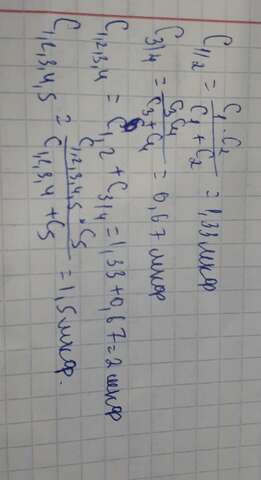 C₁,₂ = C₁·C₂ / C₁+C₂ = 1,33 мкф
C₃,₄ = C₃C₄ / C₃+C₄ = 0,67 мкф
C₁,₂,₃,₄ = C₁,₂ + C₃,₄ = 1,33+0,67=2 мкф
C₁,₂,₃,₄,₅ = C₁,₂,₃,₄,₅·C₅ / C₁,₂,₃,₄+C₅ = 1,5 мкф.